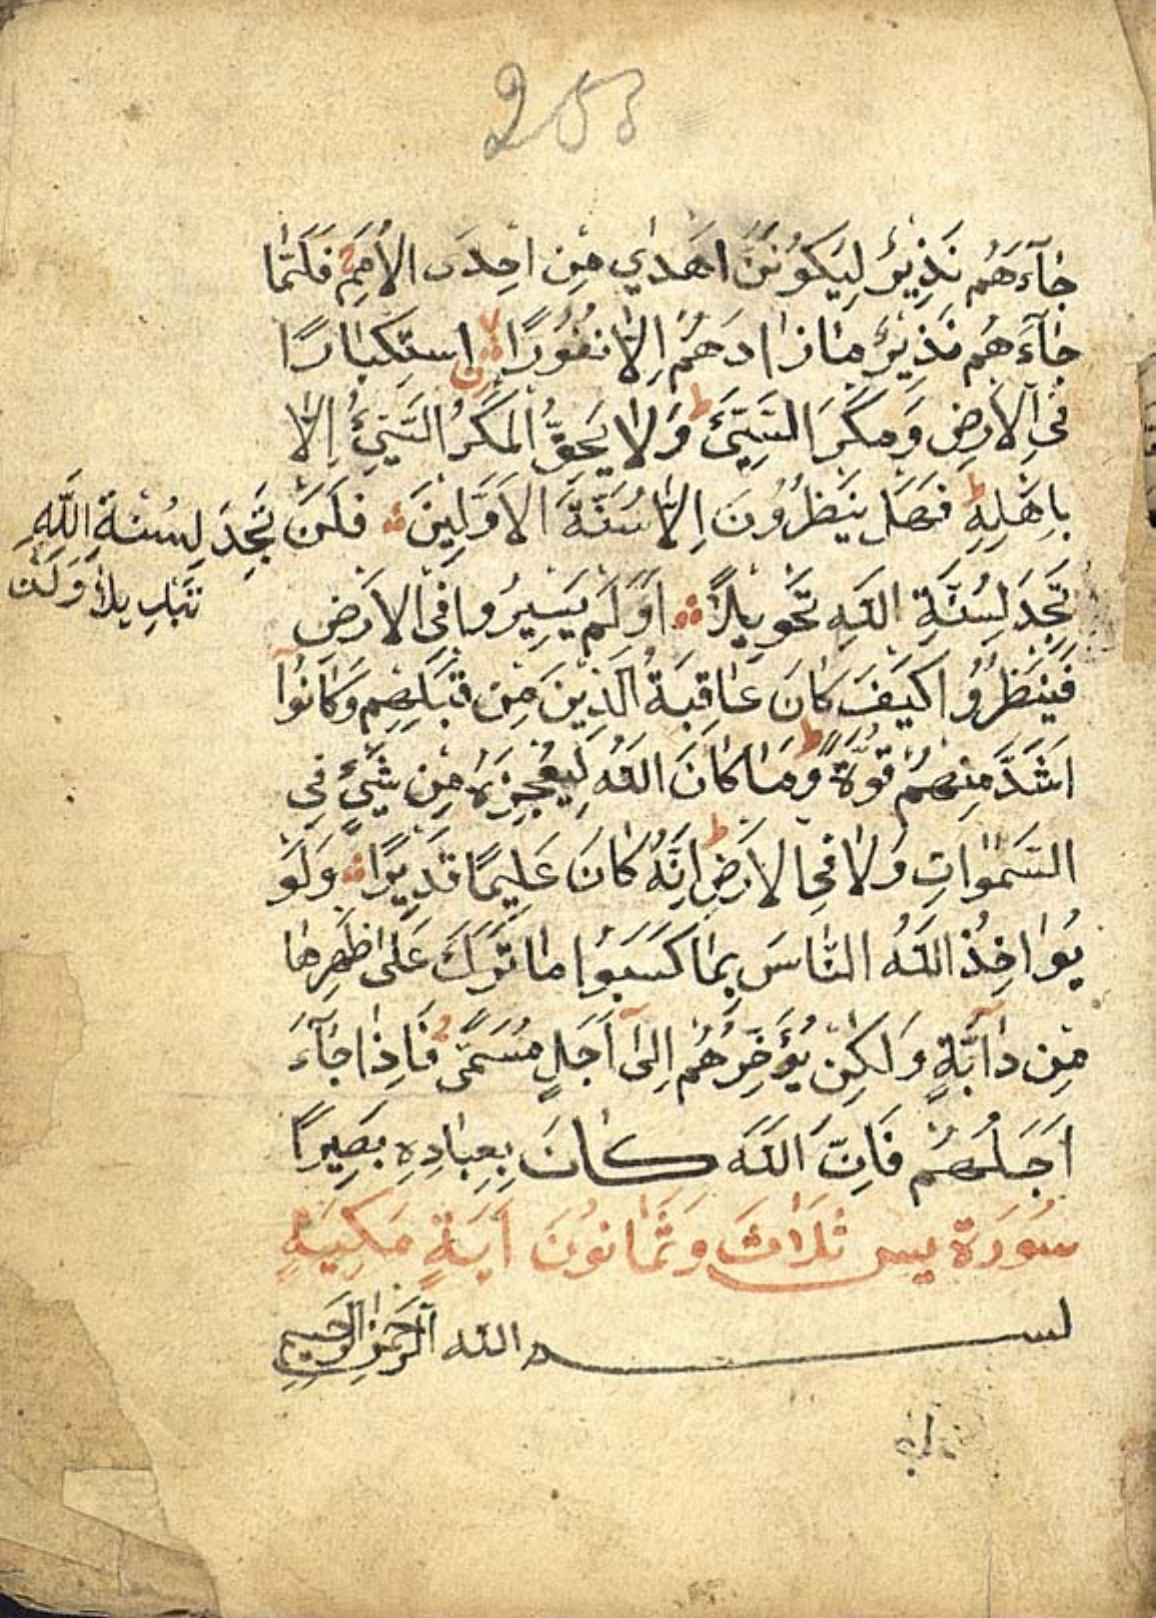 253
جَآءَهُم نَذِيرٌ لِيَكُونُنَّ اَهْدٰي مِن اِحدَى الاُمَمِ فَلَمَّا
جَآءَهُم نَذِيرٌ مَا زَادَهُم اِلَّا نُفُورًا اِستِكبَارًا
فِي الاَرضِ وَمَكرَ السَّيِّئِ وَلَا يَحِيقُ المَكرُ السَّيِّئُ اِلَّا
بِاَهلِهِ فَهَل يَنظُرُونَ اِلَّا سُنَّةَ الاَوَّلِينَ فَلَن تَجِدَ لِسُنَّةِ اللّٰهِ
تَبدِيلًا وَلَن
تَجِدَ لِسُنَّةِ اللّٰهِ تَحوِيلًا اَوَلَم يَسِيرُوا فِي الاَرضِ
فَيَنظُرُوا كَيفَ كَانَ عَاقِبَةُ الَّذِينَ مِن قَبلِهِم وَكَانُوا
اَشَدَّ مِنهُم قُوَّةً وَمَا كَانَ اللّٰهُ لِيُعجِزَهُ مِن شَيءٍ فِي
السَّمٰوَاتِ وَلَا فِي الاَرضِ اِنَّهُ كَانَ عَلِيمًا قَدِيرًا وَلَو
يُوَاخِذُ اللّٰهُ النَّاسَ بِمَا كَسَبُوا مَا تَرَكَ عَلٰى ظَهرِهَا
مِن دَآبَّةٍ وَلٰكِن يُؤَخِّرُهُم اِلٰى اَجَلٍ مُسَمًّى فَاِذَا جَآءَ
اَجَلُهُم فَاِنَّ اللّٰهَ كَانَ بِعِبَادِهِ بَصِيرًا
سُورَة يس ثَلَاثَ وَثَمَانُونَ اَيَةٍ مَكِيَةٍ
بسم اللّٰه الرَّحمٰنِ الرَّحِيمِ